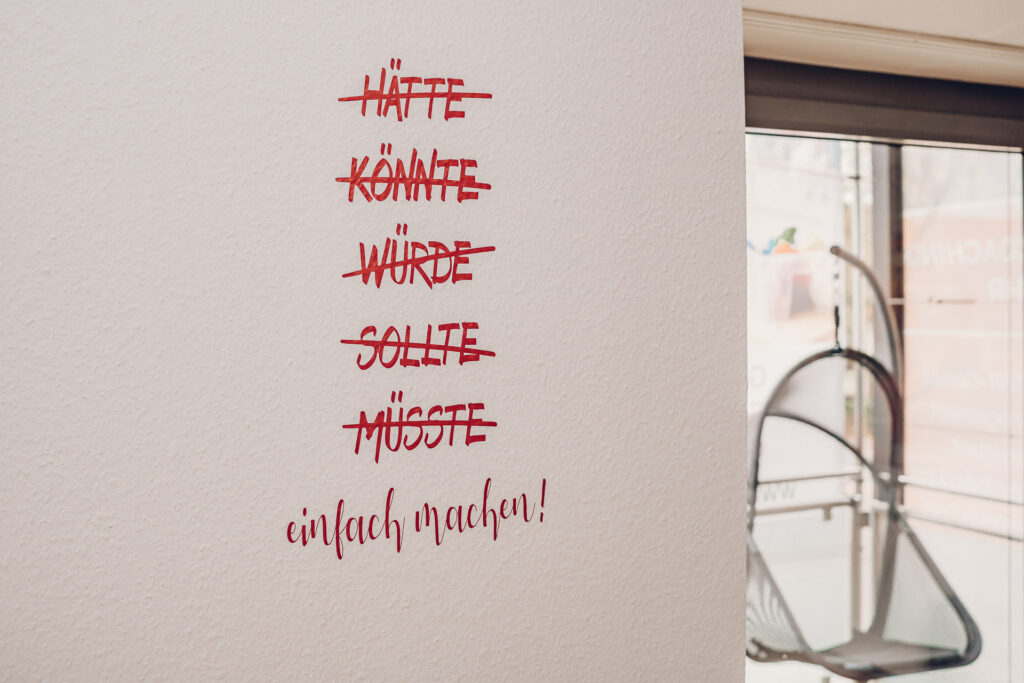 HÄTTE
KÖNNTE
WÜRDE
SOLLTE
MÜSSTE
einfach machen!